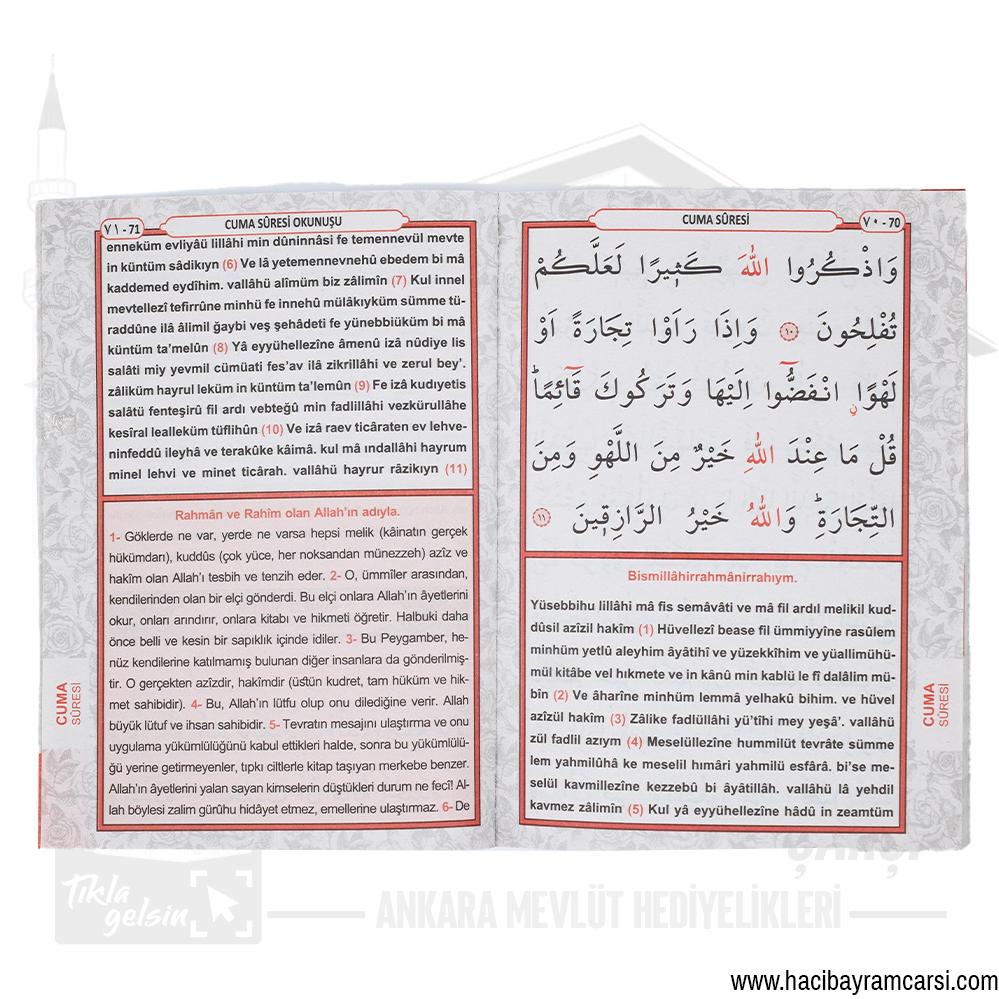 CUMA SÛRESİ
٧٠ - 70
وَاذْكُرُوا اللّٰهَ كَث۪يرًا لَعَلَّكُمْ
تُفْلِحُونَ ١٠ وَاِذَا رَاَوْا تِجَارَةً اَوْ
لَهْوًاۨ انْفَضُّٓوا اِلَيْهَا وَتَرَكُوكَ قَٓائِمًاۜ
قُلْ مَا عِنْدَ اللّٰهِ خَيْرٌ مِنَ اللَّهْوِ وَمِنَ
التِّجَارَةِۜ وَاللّٰهُ خَيْرُ الرَّازِق۪ينَ ١١
Bismillâhirrahmânirrahıym.
Yüsebbihu lillâhi mâ fis semâvâti ve mâ fil ardıl melikil kud-
dûsil azîzil hakîm (1) Hüvellezî bease fil ümmiyyîne rasûlem
minhüm yetlû aleyhim âyâtihî ve yüzekkîhim ve yüallimühü-
mül kitâbe vel hıkmete ve in kânû min kablü le fî dalâlim mü-
bîn (2) Ve âharîne minhüm lemmâ yelhakû bihim. ve hüvel
azîzül hakîm (3) Zâlike fadlüllâhi yü'tîhi mey yeşâ'. vallâhü
zül fadlil azıym (4) Meselüllezîne hummilüt tevrâte sümme
lem yahmilûhâ ke meselil hımâri yahmilü esfârâ. bi'se me-
selül kavmillezîne kezzebû bi âyâtillâh. vallâhü lâ yehdil
kavmez zâlimîn (5) Kul yâ eyyühellezîne hâdû in zeamtüm
CUMA
SÛRESİ
٧١ - 71
CUMA SÛRESİ OKUNUŞU
enneküm evliyâü lillâhi min dûninnâsi fe temennevül mevte
in küntüm sâdikıyn (6) Ve lâ yetemennevnehû ebedem bi mâ
kaddemed eydîhim. vallâhü alîmüm biz zâlimîn (7) Kul innel
mevtellezî tefirrûne minhü fe innehû mülâkıyküm sümme tü-
raddûne ilâ âlimil ğaybi veş şehâdeti fe yünebbiüküm bi mâ
küntüm ta'melûn (8) Yâ eyyühellezîne âmenû izâ nûdiye lis
salâti miy yevmil cümüati fes'av ilâ zikrillâhi ve zerul bey'.
zâliküm hayrul leküm in küntüm ta'lemûn (9) Fe izâ kudıyetis
salâtü fenteşirû fil ardı vebteğû min fadlillâhi vezkürullâhe
kesîral lealleküm tüflihûn (10) Ve izâ raev ticâraten ev lehve-
ninfeddû ileyhâ ve terakûke kâimâ. kul mâ ındallâhi hayrum
minel lehvi ve minet ticârah. vallâhü hayrur râzikıyn (11)
Rahmân ve Rahîm olan Allah'ın adıyla.
1- Göklerde ne var, yerde ne varsa hepsi melik (kâinatın gerçek
hükümdarı), kuddûs (çok yüce, her noksandan münezzeh) azîz ve
hakîm olan Allah'ı tesbih ve tenzih eder. 2- O, ümmîler arasından,
kendilerinden olan bir elçi gönderdi. Bu elçi onlara Allah'ın âyetlerini
okur, onları arındırır, onlara kitabı ve hikmeti öğretir. Halbuki daha
önce belli ve kesin bir sapıklık içinde idiler. 3- Bu Peygamber, he-
nüz kendilerine katılmamış bulunan diğer insanlara da gönderilmiş-
tir. O gerçekten azîzdir, hakîmdir (üstün kudret, tam hüküm ve hik-
met sahibidir). 4- Bu, Allah'ın lûtfu olup onu dilediğine verir. Allah
büyük lütuf ve ihsan sahibidir. 5- Tevratın mesajını ulaştırma ve onu
uygulama yükümlülüğünü kabul ettikleri halde, sonra bu yükümlülü-
ğü yerine getirmeyenler, tıpkı ciltlerle kitap taşıyan merkebe benzer.
Allah'ın âyetlerini yalan sayan kimselerin düştükleri durum ne fecî! Al-
lah böylesi zalim gürûhu hidâyet etmez, emellerine ulaştırmaz. 6- De
CUMA
SÛRESİ
ÇARŞI
Tıkla
gelsin
ANKARA MEVLÜT HEDİYELİKLERİ
www.hacibayramcarsi.com